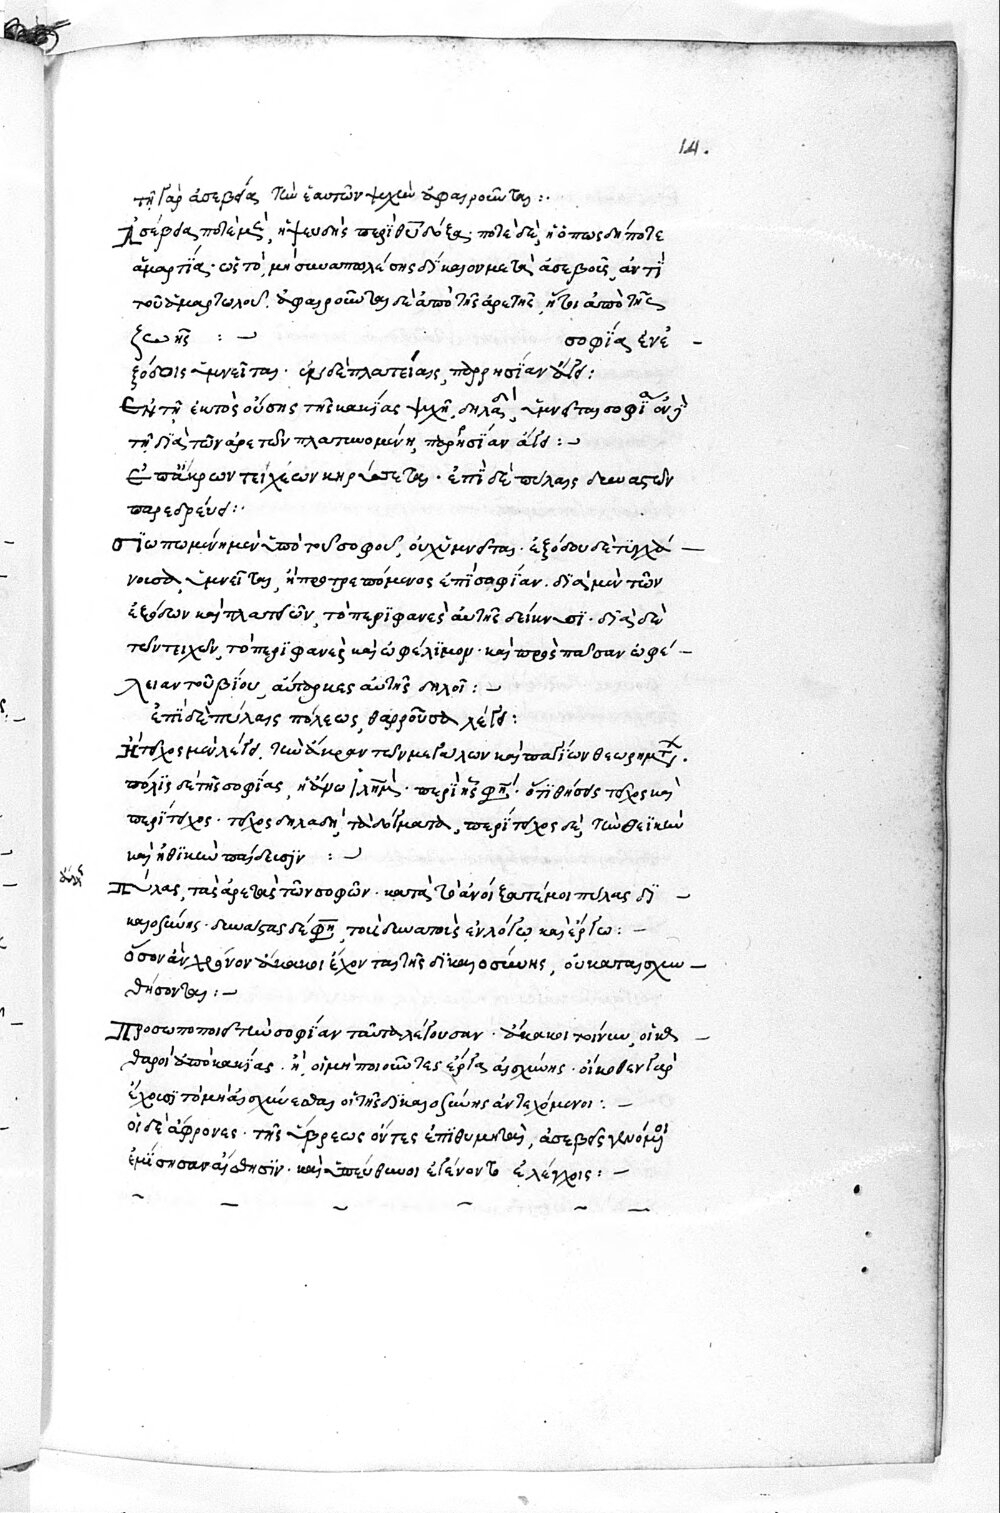 14.
τῇ γὰρ ἀσεβείᾳ τὴν ἑαυτῶν ψυχὴν ἀφαιροῦνται :·
Ἀσέβεια ποτὲ μὲν, ἡ ψευδὴς περὶ θεοῦ δόξα· ποτὲ δὲ, ἡ ὁπωσδήποτε
ἁμαρτία· ὡς τὸ, μὴ συναπολέσῃς δίκαιον μετὰ ἀσεβοῦς, ἀντὶ
τοῦ ἁμαρτωλοῦ. ἀφαιροῦνται δὲ ἀπὸ τῆς ἀρετῆς, ἤτοι ἀπὸ τῆς
ζωῆς : ~ σοφία ἐν ἐ –
ξόδοις ὑμνεῖται· ἐν δὲ πλατείαις, παρρησίαν ἄγει :
Ἐν τῇ ἐκτὸς οὔσῃ τῆς κακίας ψυχῇ, δηλαδὴ, ὑμνεῖται σοφία
τῇ διὰ τῶν ἀρετῶν πλατυνομένῃ, παρρησίαν ἄγει : ~
Ἐπ' ἄκρων τειχέων κηρύσσεται· ἐπὶ δὲ πύλαις δυναστῶν
παρεδρεύει :·
σιωπωμένη μὲν ὑπὸ τοῦ σοφοῦ, οὐχ ὑμνεῖται· ἐξόδου δὲ τυγχά –
νουσα, ὑμνεῖται, ἡ προτρεπόμενος ἐπὶ σοφίαν. διὰ μὲν τῶν
ἐξόδων καὶ πλατειῶν, τὸ περιφανὲς αὐτῆς δείκνυσι· διὰ δὲ
τῶν τειχῶν, τὸ περιφανὲς καὶ ὠφέλιμον· καὶ πρὸς πᾶσαν ὠφέ –
λειαν τοῦ βίου, αὔταρκες αὐτῆς δηλοῖ : ~
ἐπὶ δὲ πύλαις πόλεως, θαρροῦσα λέγει :
Ἢ τεῖχος μὲν λέγει, τὴν ἄκραν τῶν μεγάλων καὶ παγίων θεωρημάτων.
πόλις δὲ τῆς σοφίας, ἡ ἄνω ἱλὴμ· περὶ ἧς φησί· ὅτι θήσει τεῖχος καὶ
περίτειχος· τεῖχος δηλαδὴ, τὰ δόγματα, περίτειχος δὲ, τὴν θεϊκὴν
καὶ ἠθικὴν παίδευσιν : ~
Πύλας, τὰς ἀρετὰς τῶν σοφῶν· κατὰ τὸ ἀνοίξατέ μοι πύλας δι –
καιοσύνης· δυνάστας δέ φησι, τοὺς δυνατοὺς ἐν λόγῳ καὶ ἔργῳ : –
Ὅσον ἂν χρόνον ἄκακοι ἔχονται τῆς δικαιοσύνης, οὐκ αἰσχυν –
θήσονται : –
Προσωποποιεῖ τὴν σοφίαν ταῦτα λέγουσαν· ἄκακοι τοίνυν, οἱ κα –
θαροὶ ἀπὸ κακίας· ἢ, οἱ μὴ ποιοῦντες ἔργα αἰσχύνης· οἴκοθεν γὰρ
ἔχουσι τὸ μὴ αἰσχύνεσθαι οἱ τῆς δικαιοσύνης ἀντεχόμενοι : –
οἱ δὲ ἄφρονες· τῆς ὕβρεως ὄντες ἐπιθυμηταὶ, ἀσεβεῖς γενόμενοι
ἐμίσησαν αἴσθησιν· καὶ ὑπεύθυνοι ἐγένοντο ἐλέγχοις : –